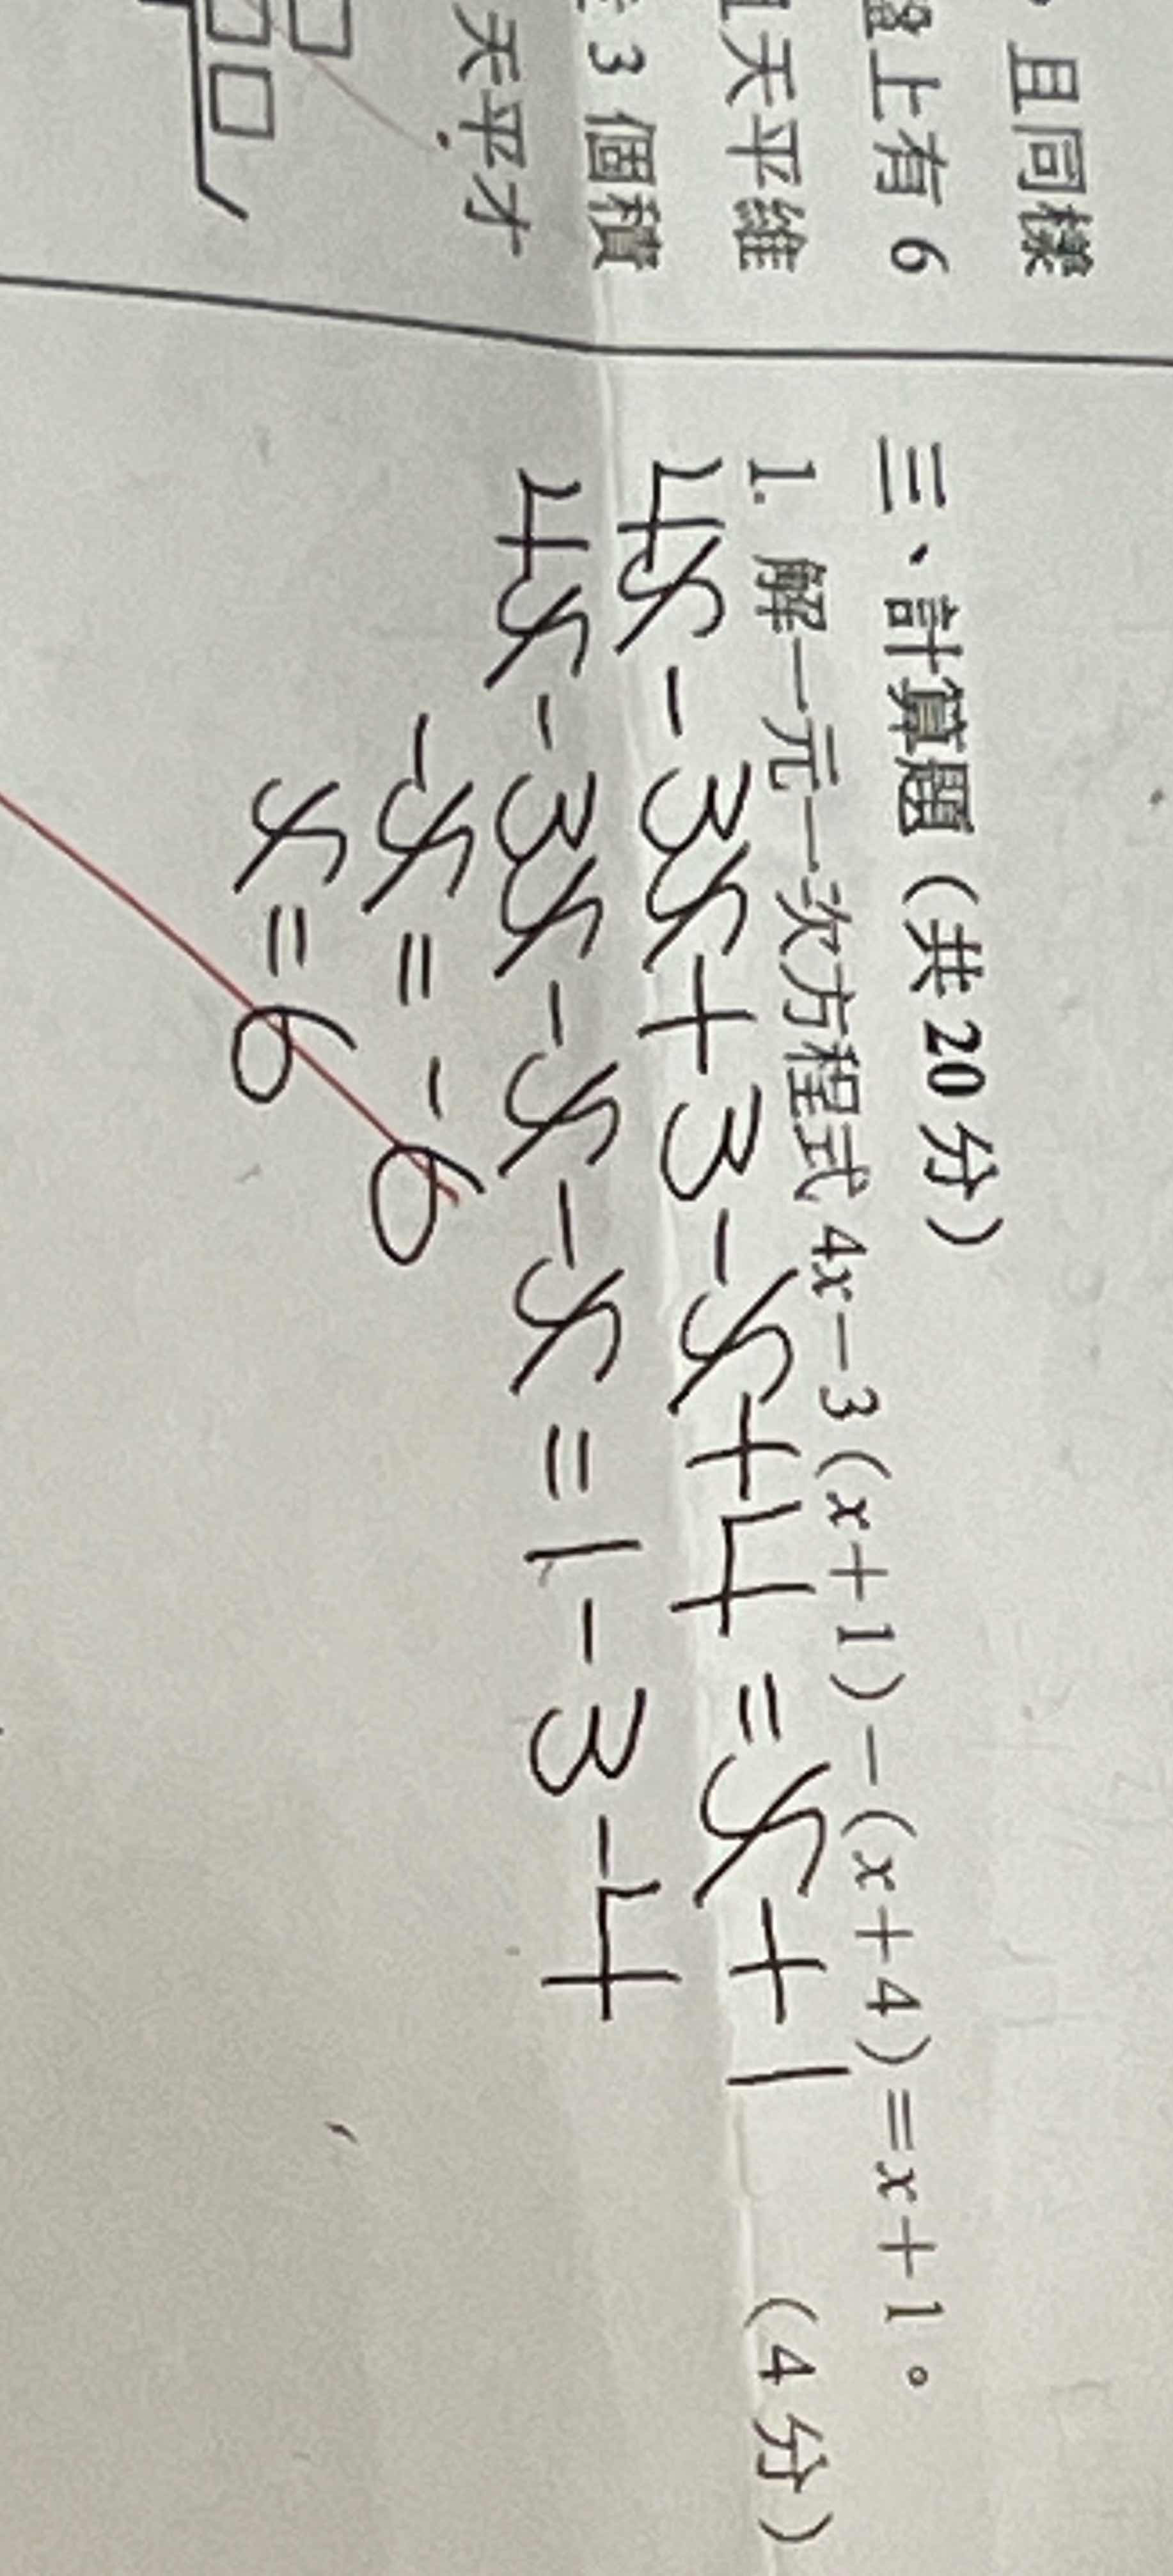 且同樣
盤上有 6
天平維
3 個積
天平才
三、計算題（共 20 分）
1. 解一元一次方程式 4x－3（x＋1）－（x＋4）＝x＋1。
（4 分）
4x-3x+3-x+4=x+1
4x-3x-x-x=1-3-4
-x=-6
x=6